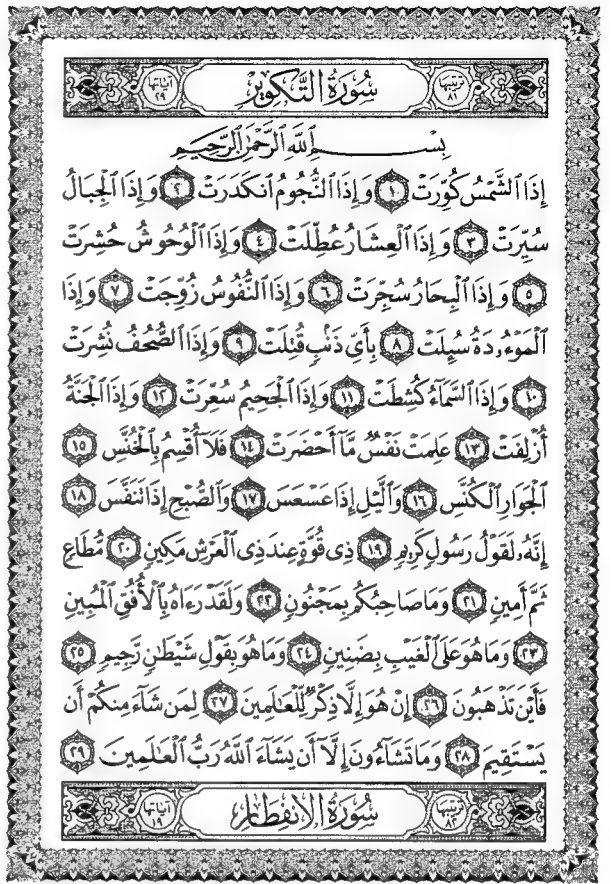 ترتيبها ٨١ سُورَةُ التَّكْوِيرِ آياتها ٢٩
بِسْمِ اللَّهِ الرَّحْمَٰنِ الرَّحِيمِ
إِذَا الشَّمْسُ كُوِّرَتْ ١ وَإِذَا النُّجُومُ انكَدَرَتْ ٢ وَإِذَا الْجِبَالُ
سُيِّرَتْ ٣ وَإِذَا الْعِشَارُ عُطِّلَتْ ٤ وَإِذَا الْوُحُوشُ حُشِرَتْ
٥ وَإِذَا الْبِحَارُ سُجِّرَتْ ٦ وَإِذَا النُّفُوسُ زُوِّجَتْ ٧ وَإِذَا
الْمَوْءُۥدَةُ سُئِلَتْ ٨ بِأَيِّ ذَنۢبٍ قُتِلَتْ ٩ وَإِذَا الصُّحُفُ نُشِرَتْ
١٠ وَإِذَا السَّمَآءُ كُشِطَتْ ١١ وَإِذَا الْجَحِيمُ سُعِّرَتْ ١٢ وَإِذَا الْجَنَّةُ
أُزْلِفَتْ ١٣ عَلِمَتْ نَفْسٌ مَّآ أَحْضَرَتْ ١٤ فَلَآ أُقْسِمُ بِالْخُنَّسِ ١٥
الْجَوَارِ الْكُنَّسِ ١٦ وَاللَّيْلِ إِذَا عَسْعَسَ ١٧ وَالصُّبْحِ إِذَا تَنَفَّسَ ١٨
إِنَّهُۥ لَقَوْلُ رَسُولٍ كَرِيمٍ ١٩ ذِي قُوَّةٍ عِندَ ذِي الْعَرْشِ مَكِينٍ ٢٠ مُّطَاعٍ
ثَمَّ أَمِينٍ ٢١ وَمَا صَاحِبُكُم بِمَجْنُونٍ ٢٢ وَلَقَدْ رَءَاهُ بِالْأُفُقِ الْمُبِينِ
٢٣ وَمَا هُوَ عَلَى الْغَيْبِ بِضَنِينٍ ٢٤ وَمَا هُوَ بِقَوْلِ شَيْطَٰنٍ رَّجِيمٍ ٢٥
فَأَيْنَ تَذْهَبُونَ ٢٦ إِنْ هُوَ إِلَّا ذِكْرٌ لِّلْعَٰلَمِينَ ٢٧ لِمَن شَآءَ مِنكُمْ أَن
يَسْتَقِيمَ ٢٨ وَمَا تَشَآءُونَ إِلَّآ أَن يَشَآءَ اللَّهُ رَبُّ الْعَٰلَمِينَ ٢٩
ترتيبها ٨٢ سُورَةُ الِانفِطَارِ آياتها ١٩